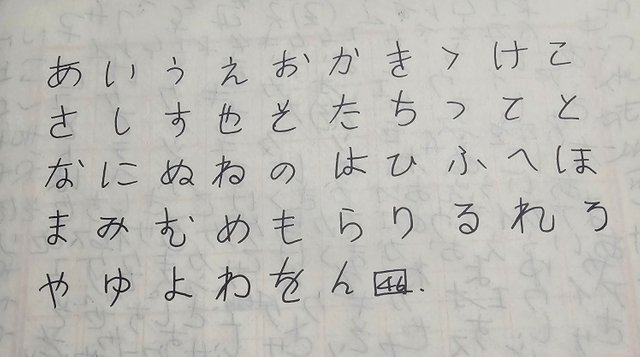 あいうえおかきくけこ
さしすせそたちつてと
なにぬねのはひふへほ
まみむめもらりるれろ
やゆよわをん 46.